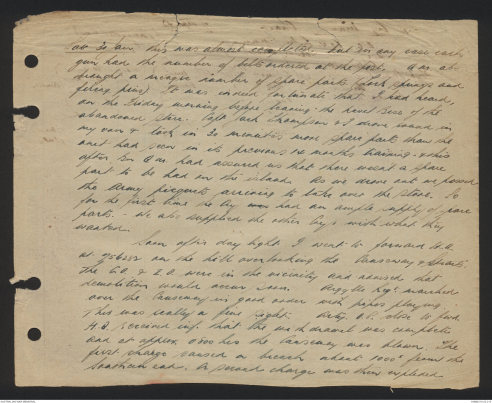 this was almost completed. But in any case each
gun had the number of belts ordered at the
brought a meagre number of spare parts (lock springs and
firing pins) It was indeed fortunate that I had heard,
on the Friday morning before leaving the
abandoned store. Capt Jack Thompson & I drove round in
my van & took in 30 minutes more spare parts than the
unit had seen in its previous months training - this
after Bn Q.M. had assured us that there wasn't a spare
part to be had on the island. As we drove out we passed
the Army picquets arriving to take over the store. So
for the first time the had an ample supply of spare
parts. - We also supplied the other with what they
wanted.
Soon after day light I went to forward H.Q.
at on the hill overlooking the Causeway & Straits.
The C.O. & I.O. were in the vicinity and advised that
demolition would occur soon. Argyll marched
over the Causeway in good order with pipes playing.
This was really a fine sight. close to
H.Q. received info that the withdrawal was complete
and at approx 0800 hrs the Causeway was blown. The
first charge caused a breach about from the
Southern end. A second charge was then exploded